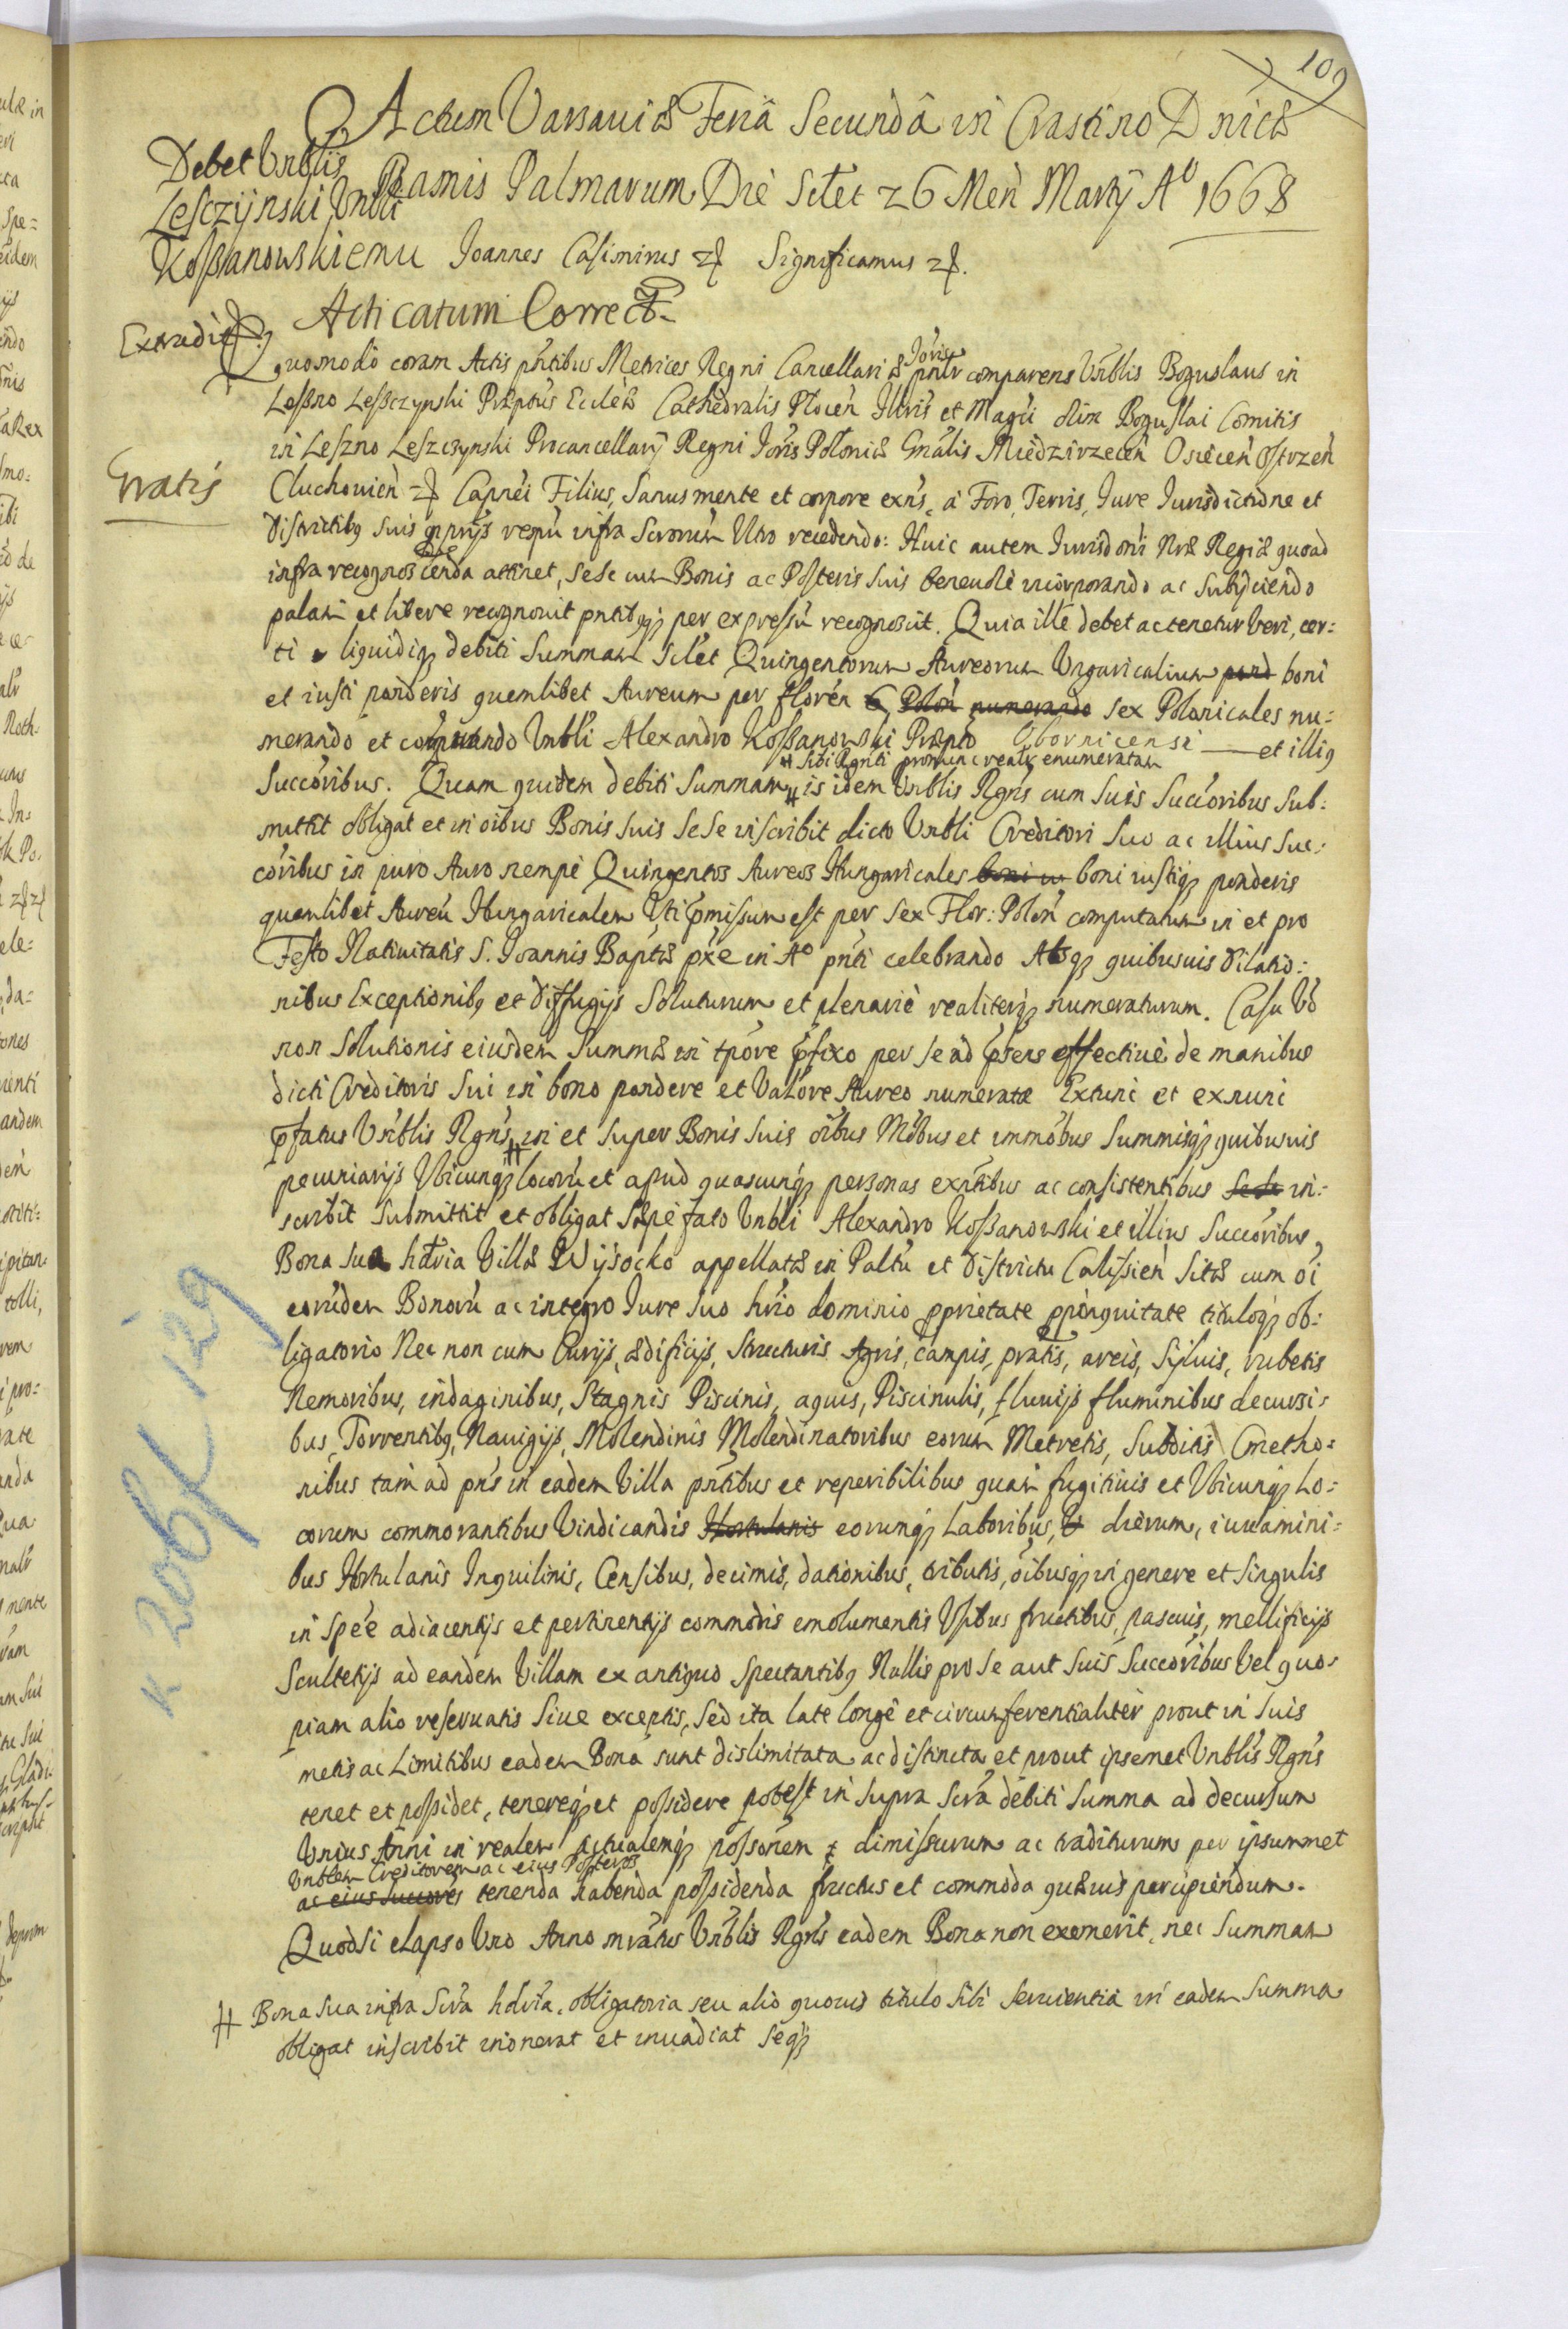 109
Actum Varsaviæ Feriâ Secundâ in Crastino Dnicæ
Ramis Palmarum Die Sclet 26 Men Martÿ Aº 1668
Debet Vnblis
Lesczÿnski Vnbli
Koßßanowskiemu
Joannes Casimirus etc Significamus etc.
Acticatum Correct.
Extradit.
Gratis
quomodo coram Actis pntibus Metrices Regni Cancellariæ Joris pnlr comparens Vnblis Boguslaus in
Leßno Leßczynski Præptus Ecclæ Cathedralis Plocen Illris et Magci olim Boguslai Comitis
in Leszno Leszczynski Procancellarÿ Regni Joris Poloniæ Gnalis Miedzirzecen Osiecen Ostrzen
Cluchouien etc Capnei Filius, Sanus mente et corpore exns, a Foro, Terris, Jure Jurisdictione et
Districtibq suis pprÿs respu infra Scrorum Vtro recedendo: Huic autem Jurisdoni Nræ Regiæ quoad
infra recognoscenda attinet, sese cum Bonis ac Posteris suis beneuole incorporando ac subÿciendo
palam et libere recognouit pntibqq per expressu recognoscit. Quia ille debet ac tenetur veri, cer:
ti liquidiq debiti Summam Sclet Quingentorum Aureorum Vngaricalium pond boni
et iusti ponderis quemlibet Aureum per floren 6 Polon numerando sex Polonicales nu:
merando et computando Vnbli Alexandro Koßßanowski Præpto Obornicensi et illiq
# sibi Rgnti pronunc realr enumeratam
Succoribus. Quam quidem debiti Summam # is idem Vnblis Rgns cum suis Succoribus Sub:
mittit obligat et in oibus Bonis suis sese inscribit dicto Vnbli Creditori suo ac illius Suc:
coribus in puro Auro nempe Quingentos Aureos Hungaricales boni iu boni iustiq ponderis
quemlibet Aureu Hungaricalem Vti pmissum est per sex Flor: Polon computatum in et pro
Festo Natiuitatis S. Joannis Baptæ pxe in Aº pnti celebrando Absq quibusuis dilatio:
nibus Exceptionibq et diffugÿs Soluturum et plenarie realiterq numeraturum. Casu Vo
non Solutionis eiusdem Summæ in tpore pfixo per se ad psens effectiue de manibus
dicti Creditoris sui in bono pondere et Valore Aureo numeratæ Extunc et exnunc
pfatus Vnblis Rgns # in et super Bonis suis oibus Mobus et immobus Summisq quibusuis
pecuniarÿs Vbicunq locoru et apud quascunq personas exntibus ac consistentibus sese in:
scribit submittit et obligat Sæpefato Vnbli Alexandro Koßßanowski et illius Succoribus,
Bona sua hdria Villæ Wÿsocko appellatæ in Paltu et districtu Calissien sitæ cum oi
eorudem Bonoru ac integro Jure suo hrio dominio pprietate ppinquitate tituloq ob:
ligatorio Nec non cum Curÿs, ædificÿs, structuris Agris, campis, pratis, areis, Syluis, rubetis
Nemoribus, indaginibus, Stagnis Piscinis, aquis, Piscinulis, fluuÿs fluminibus decursi:
bus, Torrentibq, Nauigÿs, Molendinis Molendinatoribus eorum Metretis, Subditis Cmetho:
nibus tam ad pns in eadem Villa pntibus et reperibilibus quam fugitiuis et Vbicunq Lo:
corum commorantibus Vindicandis Hortulanis eorunq Laboribus, dierum, iuuamini:
bus Hortulanis Inquilinis, Censibus, decimis, dationibus, tributis, oibusq in genere et Singulis
in spee adiacentÿs et pertinentÿs commodis emolumentis Vsibus fructibus, pascuis, mellificÿs
Scultetÿs ad eandem Villam ex antiquo Spectantibq Nullis pro se aut suis Succoribus Vel quo:
piam alio reseruatis Siue exceptis, Sed ita late longe et circumferentialiter prout in suis
metis ac Limitibus eadem Bona sunt dislimitata ac distincta et prout ipsemet Vnblis Rgns
tenet et possidet, tenereq et possidere potest in supra scra debiti summa ad decursum
Vnius Anni in realem Actualemq possonem dimissurum ac traditurum per ipsummet
Vnblem Creditorem ac eius Posteros
ac eius Succores tenenda habenda possidenda fructus et commoda quæuis percipiendum.
Quodsi elapso Vno Anno mratus Vnblis Rgns eadem Bona non exemerit, nec Summam
# Bona sua infra Scra hdria, obligatoria seu alio quouis titulo sibi Seruientia in eadem Summa
obligat inscribit inonerat et inuadiat seqq